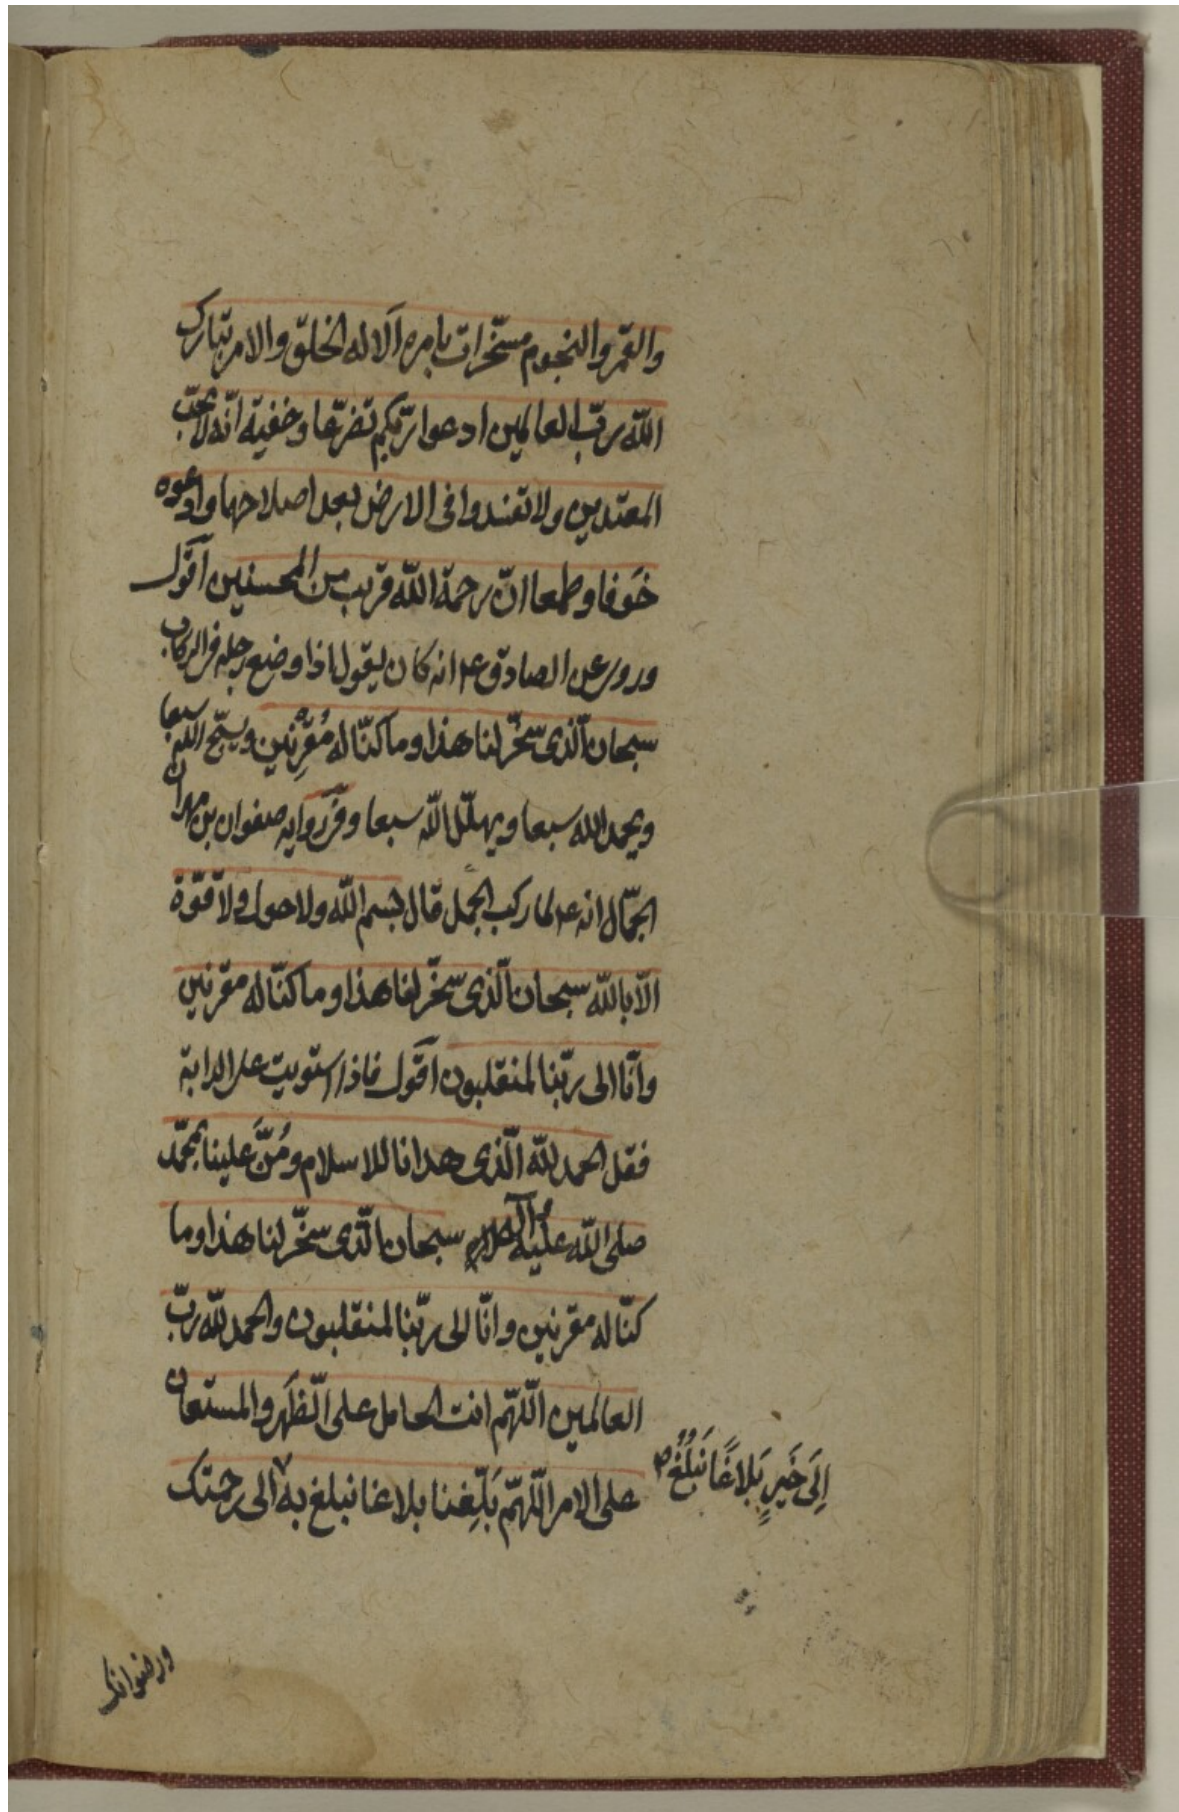 والقمر والنجوم مسخّرات بامره الا له الخلق والامر تبارك
اللّه ربّ العالمين ادعوا ربّكم تضرّعا وخفية انّه لا يحبّ
المعتدين ولا تفسدوا فى الارض بعد اصلاحها وادعوه
خوفا وطمعا انّ رحمة اللّه قريب من المحسنين اقول
وروى عن الصادق ع انه كان يقول اذا وضع رجله فى الركاب
سبحان الّذى سخّر لنا هذا وما كنّا له مُقْرِنين ويسبّح اللّه سبعا
ويحمد اللّه سبعا ويهلّل اللّه سبعا وفى رواية صفوان بن مهران
الجمّال انه ع لما ركب الجمل قال بسم اللّه ولا حول ولا قوّة
الّا باللّه سبحان الّذى سخّر لنا هذا وما كنّا له مقرنين
وانّا الى ربّنا لمنقلبون اقول فاذا استويت على الدابة
فقل الحمد للّه الّذى هدانا للاسلام ومَنَّ علينا بمحمّد
صلى اللّه عليه وآله سبحان الّذى سخّر لنا هذا وما
كنّا له مقرنين وانّا الى ربّنا لمنقلبون والحمد للّه ربّ
العالمين اللّهمّ انت الحامل على الظّهر والمستعان
على الامر اللّهمّ بَلِّغنا بلاغا نبلغ به الى رحمتك
اِلَى خَيرٍ بَلاغًا نَبلُغُ
ورضوانك